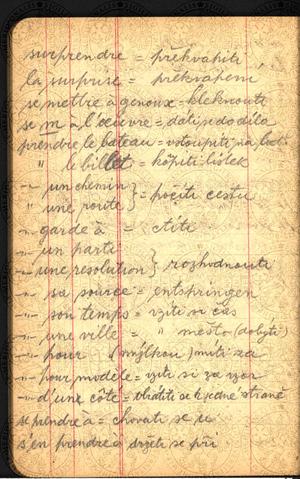 surprendre = překvapiti
la surprise = překvapení
se mettre à genoux = kleknouti
se m à l'œuvre = dáti se do díla
prendre le bateau = vstoupiti na loď
" le billet = kópiti lístek
-"- un chemin
-"- une route } = počíti cestu
-"- garde à = ctíti
-"- un parti
-"- une resolution } rozhodnouti
-"- sa source = entspringen
-"- son temps = vzíti si čas
-"- une ville = " město (dobýti)
-"- pour (mýlkou) míti za
-"- pour modèle = vzíti si za vzor
-"- d'une côté = vraceti se k jedné straně
se prendre à = chovati se u
s'en prendre à držeti se při